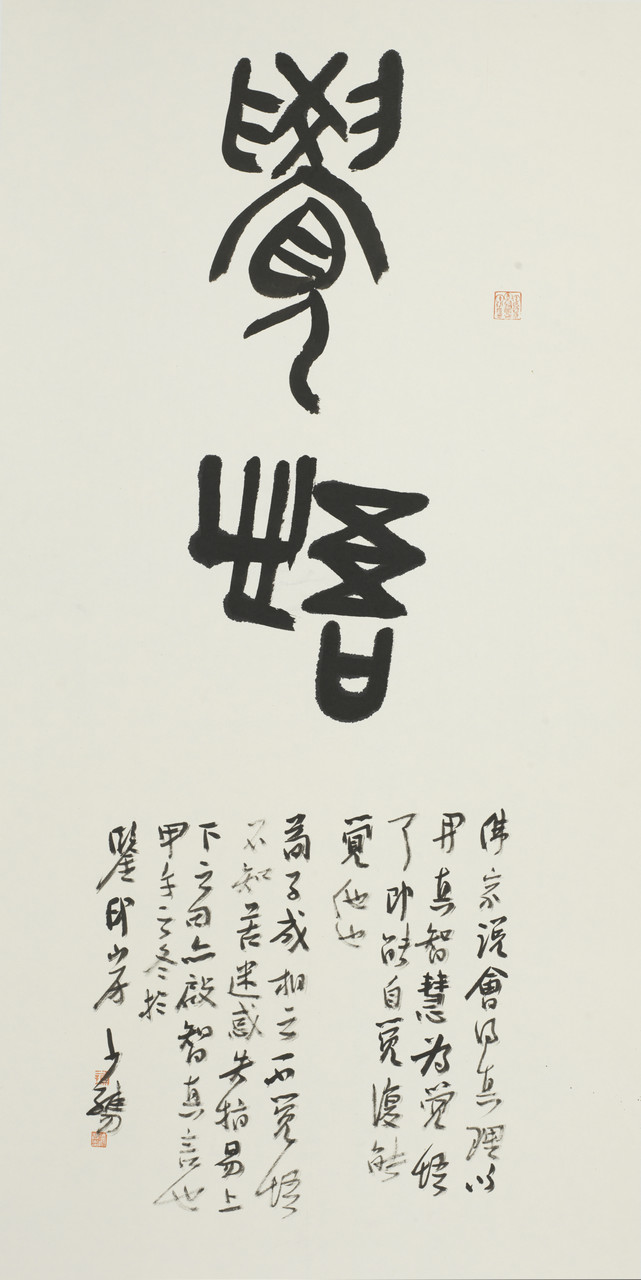 覺悟
佛家說會得真理以
開真智慧為覺悟
了即能自覺復能
覺他也
荀子成相云不覺悟
不知苦迷惑失指易上
下之句亦啟智真言也
甲午之冬於
鑒印山房